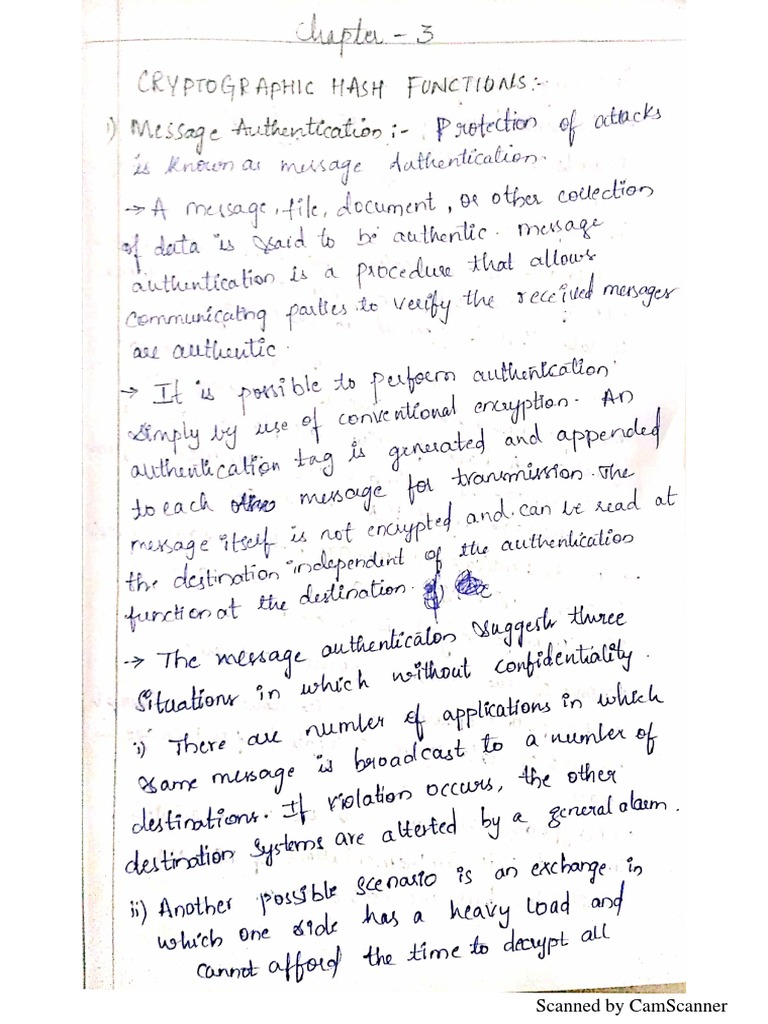 Chapter - 3
CRYPTOGRAPHIC HASH FUNCTIONS:-
i) Message Authentication:- Protection of attacks
is known as message Authentication.
→ A message, file, document, or other collection
of data is said to be authentic. message
authentication is a procedure that allows
communicating parties to verify the received messages
are authentic.
→ It is possible to perform authentication
simply by use of conventional encryption. An
authentication tag is generated and appended
to each message for transmission. The
message itself is not encrypted and can be read at
the destination independent of the authentication
function at the destination.
→ The message authenticaton suggests three
situations in which without confidentiality.
i) There are number of applications in which
same message is broadcast to a number of
destinations. If violation occurs, the other
destination systems are alterted by a general alarm.
ii) Another possible scenario is an exchange in
which one side has a heavy load and
cannot afford the time to decrypt all
Scanned by CamScanner